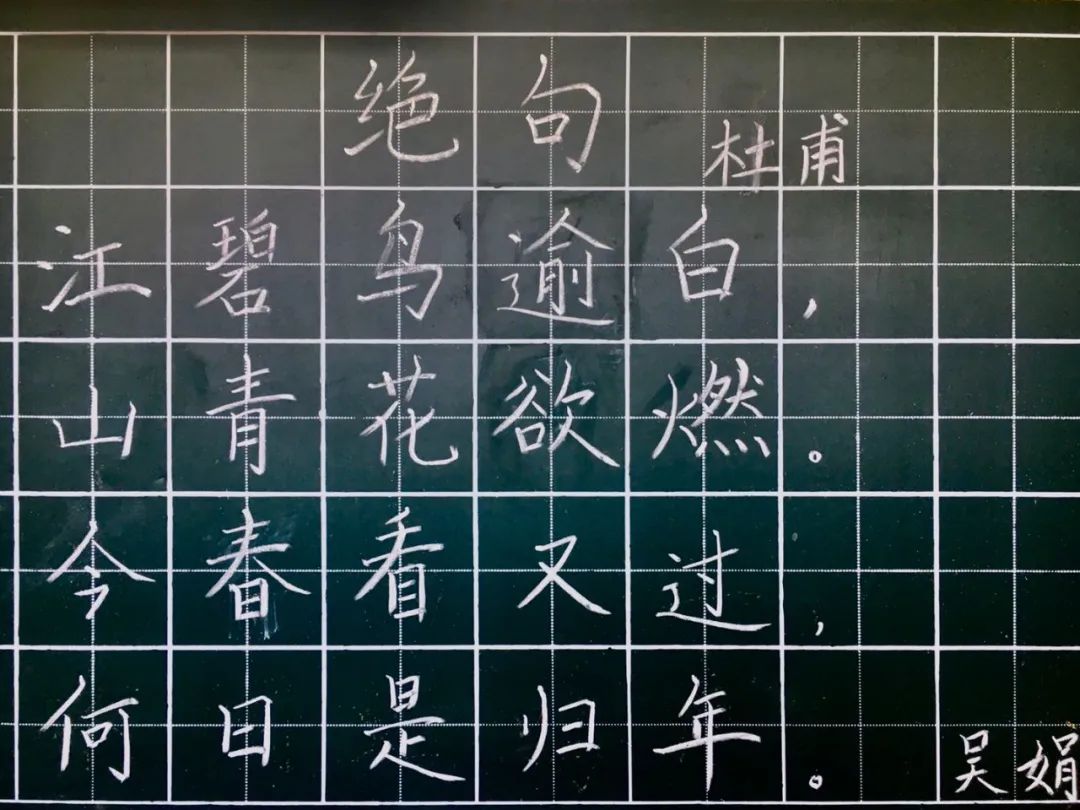 绝句
杜甫
江碧鸟逾白，
山青花欲燃。
今春看又过，
何日是归年。
吴娟